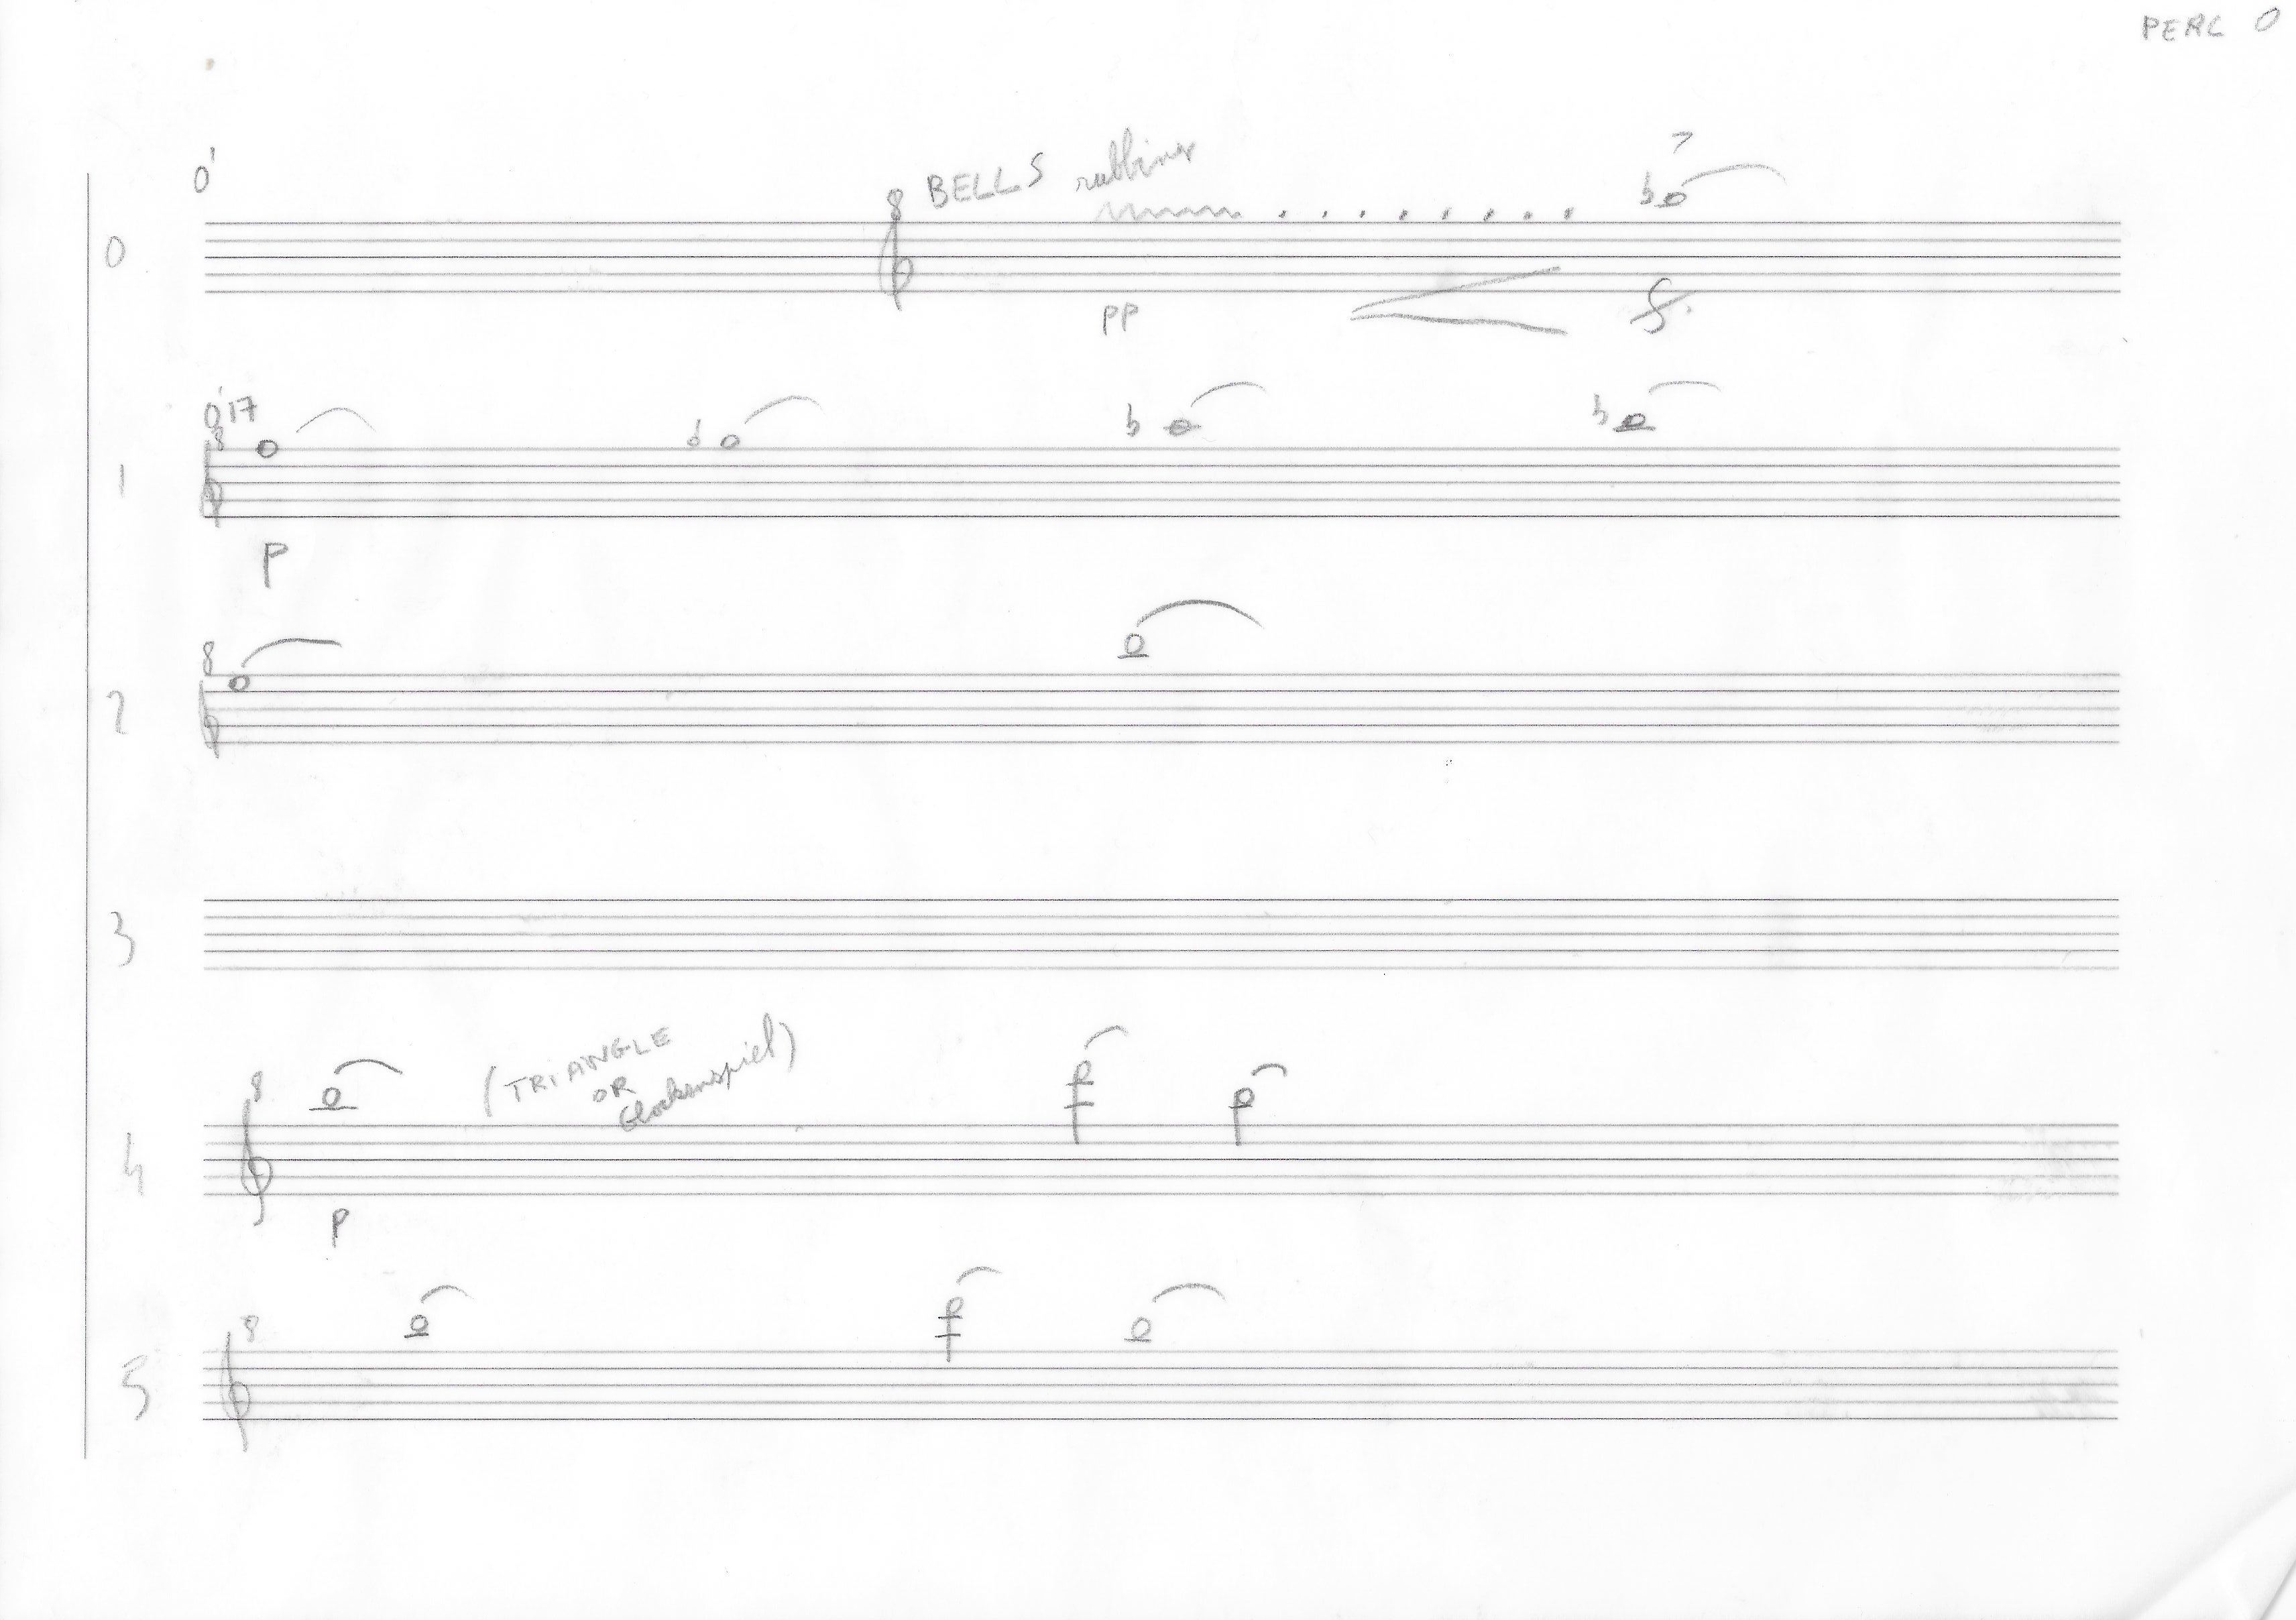 PERC 0
0'
8 BELLS rubbing
0
pp f
0'17
8
1
p
8
2
3
8 (TRIANGLE
OR
Glockenspiel)
4
p
8
5